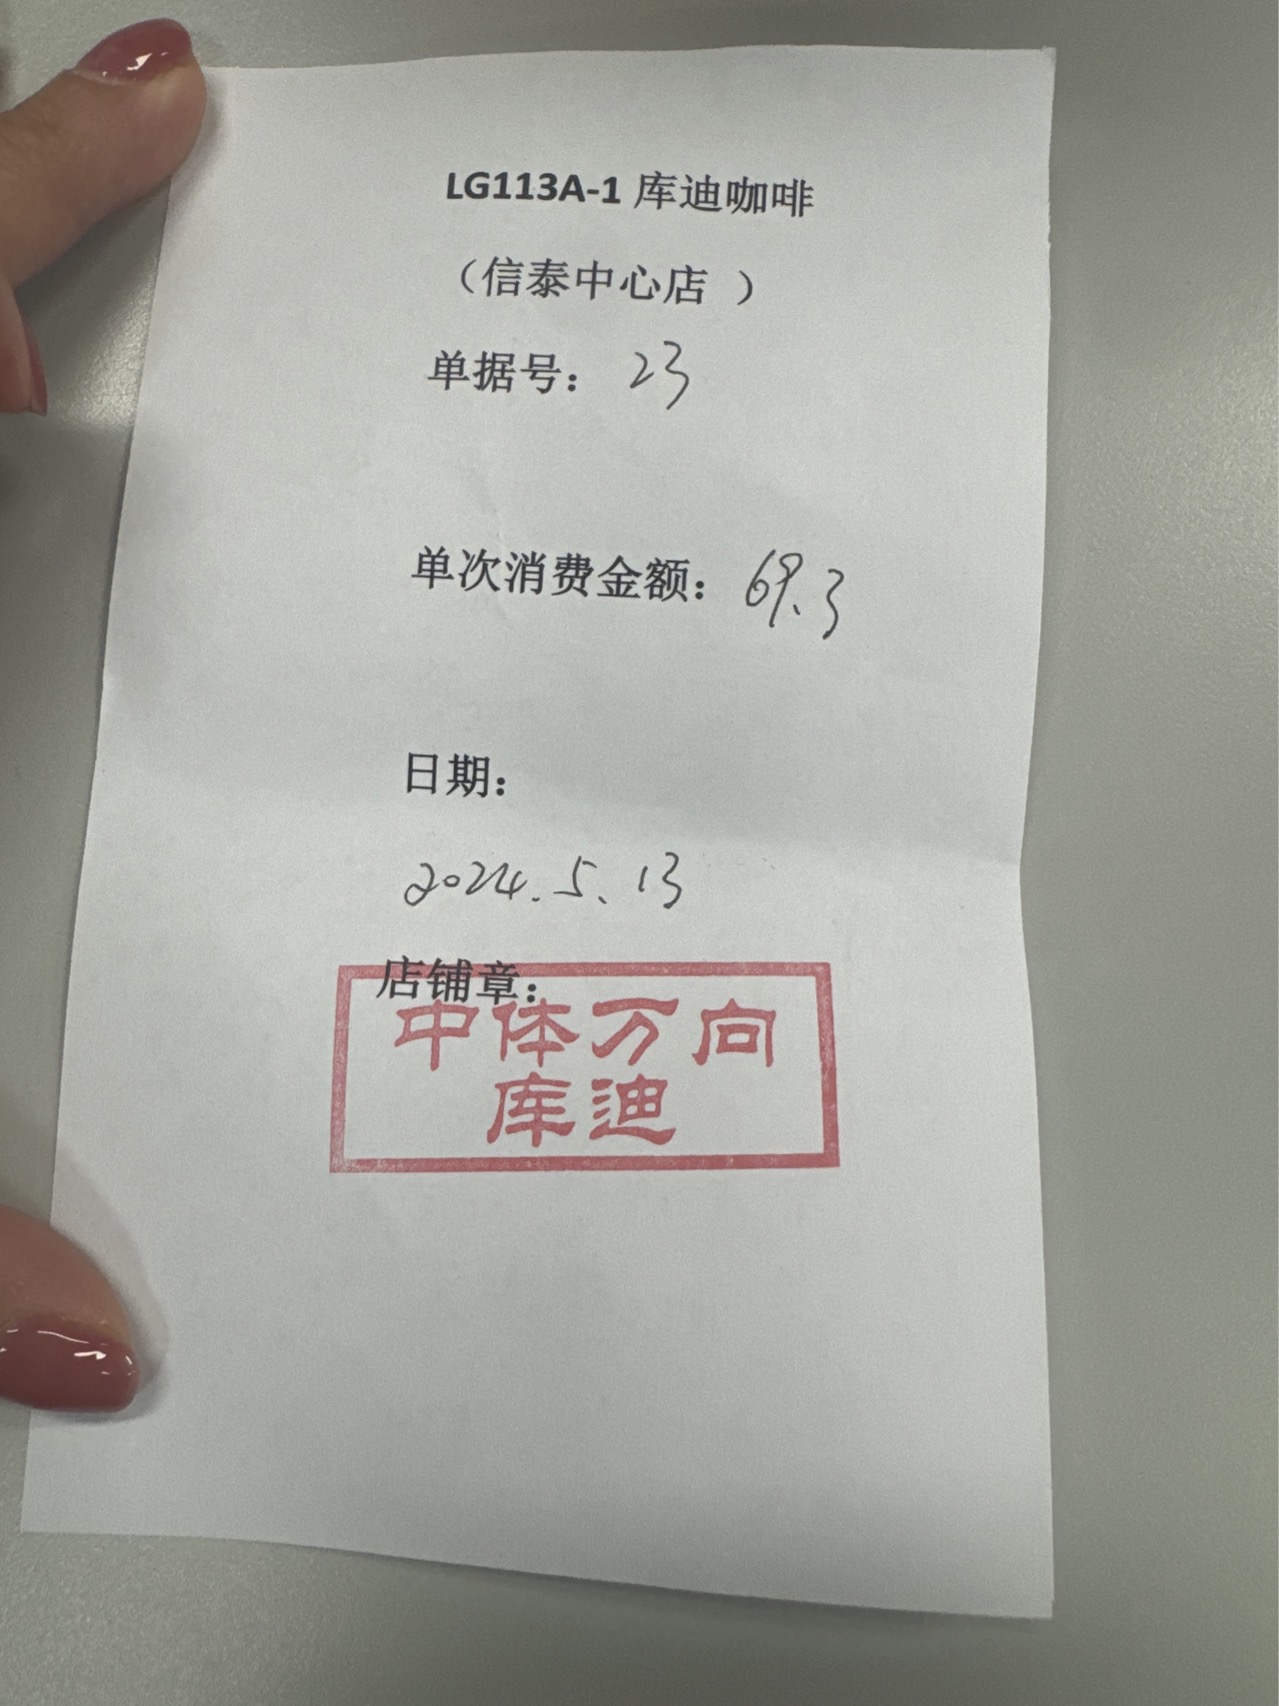 LG113A-1 库迪咖啡
（信泰中心店 ）
单据号： 23
单次消费金额：69.3
日期：
2024.5.13
店铺章：
中体万向
库迪